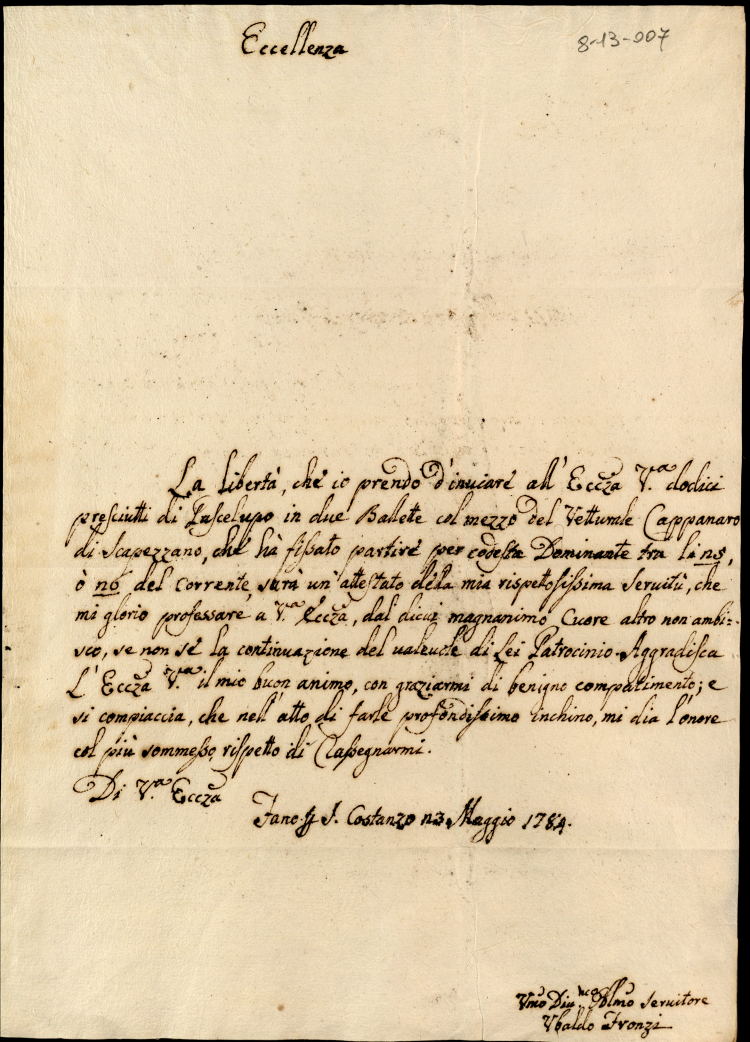 Eccellenza
8-13-007
La libertà, che io prendo d'inviare all' Eccza V.a dodici
presciutti di Pascelupo in due Ballete col mezzo del Vetturale Cappanaro
di Scapezzano, che hà fissato partire per codesta Dominante tra li
ò del corrente, sarà un'attestato della mia rispettosissima servitù, che
mi glorio professare a V.a Eccza, dal dicui magnanimo Cuore altro non ambi=
sco, se non se la continuazione del valevole di Lei Patrocinio. Aggradisca
l'Eccza V.a il mio buon animo, con graziarmi di benigno compatimento; e
si compiaccia, che nell'atto di farle profondissimo inchino, mi dia l'onore
col più sommesso rispetto di rassegnarmi.
Di V.a Eccza
Fano S. Costanzo Maggio 1784.
Vmo Servitore
Vbaldo Fronzi